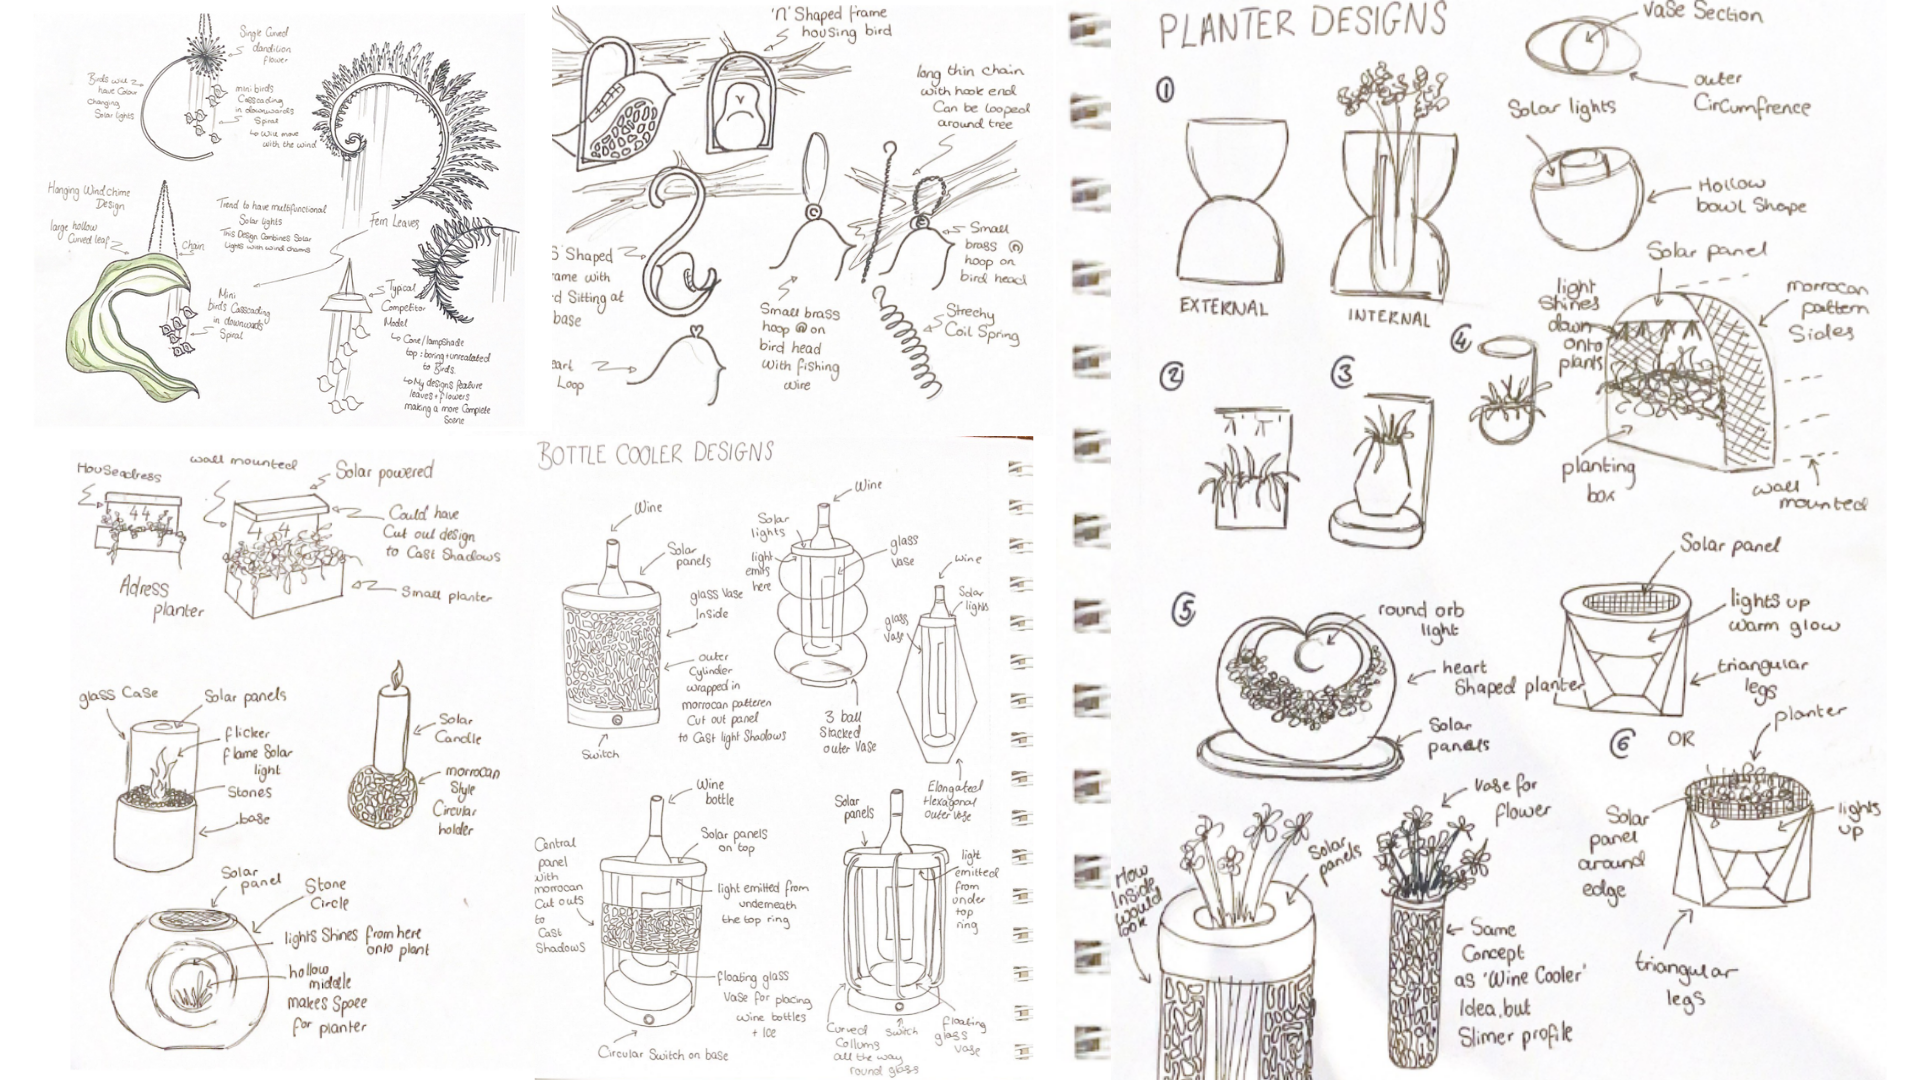 Single Curved
dandition
flower
Birds wire
have Colour
Changing
Solar lights
mini birds
Cascading
in downwards
Spiral
↳ Wire move
with the wind
Hanging Wind chime
Design
large hollow
Curved leaf
Chain
Trend to have multifunctional
Solar lights
This Design Combines Solar
lights with wind charms
Fern Leaves
Mini
birds Cascading
in downwards
Spiral
Typical
Competitor
Model
↳ Cone/lampshade
top : boring + unrealated
to Birds.
↳ My designs feature
leaves + flowers
making a more Complete
Scene
'n' Shaped frame
housing bird
long thin chain
with hook end
Can be looped
around tree
S Shaped
rame with
rd Sitting at
base
eart
Loop
Small brass
hoop on
bird head
with fishing
wire
Small
brass
hoop on
bird head
Strechy
Coil Spring
PLANTER DESIGNS
1
EXTERNAL
INTERNAL
Vase Section
outer
Circumfrence
Solar lights
Hollow
bowl Shape
2
3
4
Solar panel
light
Shines
down
onto
plants
morrocan
pattern
Sides
planting
box
wall
mounted
5
round orb
light
heart
Shaped planter
Solar
panels
Solar panel
lights up
warm glow
triangular
legs
6 OR
planter
Solar
panel
around
edge
lights
up
triangular
legs
How
Inside
would
look
Solar
panels
Vase for
flower
Same
Concept
as 'Wine Cooler'
Idea, but
Slimer profile
House adress
wall mounted
Solar powered
44
44
Could have
Cut out design
to Cast Shadows
Adress
planter
Small planter
glass Case
Solar panels
flicker
flame Solar
light
Stones
base
Solar
Candle
morrocan
Style
Circular
holder
Solar
panel
Stone
Circle
lights Shines from here
onto plant
hollow
middle
makes Space
for planter
BOTTLE COOLER DESIGNS
Wine
Solar
panels
glass Vase
Inside
outer
Cylinder
wrapped in
morrocan patteren
Cut out panel
to Cast light Shadows
Switch
Wine
Solar
lights
light
emits
here
glass
Vase
3 ball
Stacked
outer Vase
Wine
Solar
lights
glass
Vase
Elongated
Hexagonal
outer Vase
Wine
bottle
Solar panels
on top
Central
panel
with
morrocan
Cut outs
to
Cast
Shadows
light emitted from
underneath
the top ring
floating glass
Vase for placing
wine bottles
+ Ice
Circular Switch on base
Solar
panels
light
emitted
from
under
top
ring
Curved
Collums
all the way
round glass
Switch
floating
glass
Vase